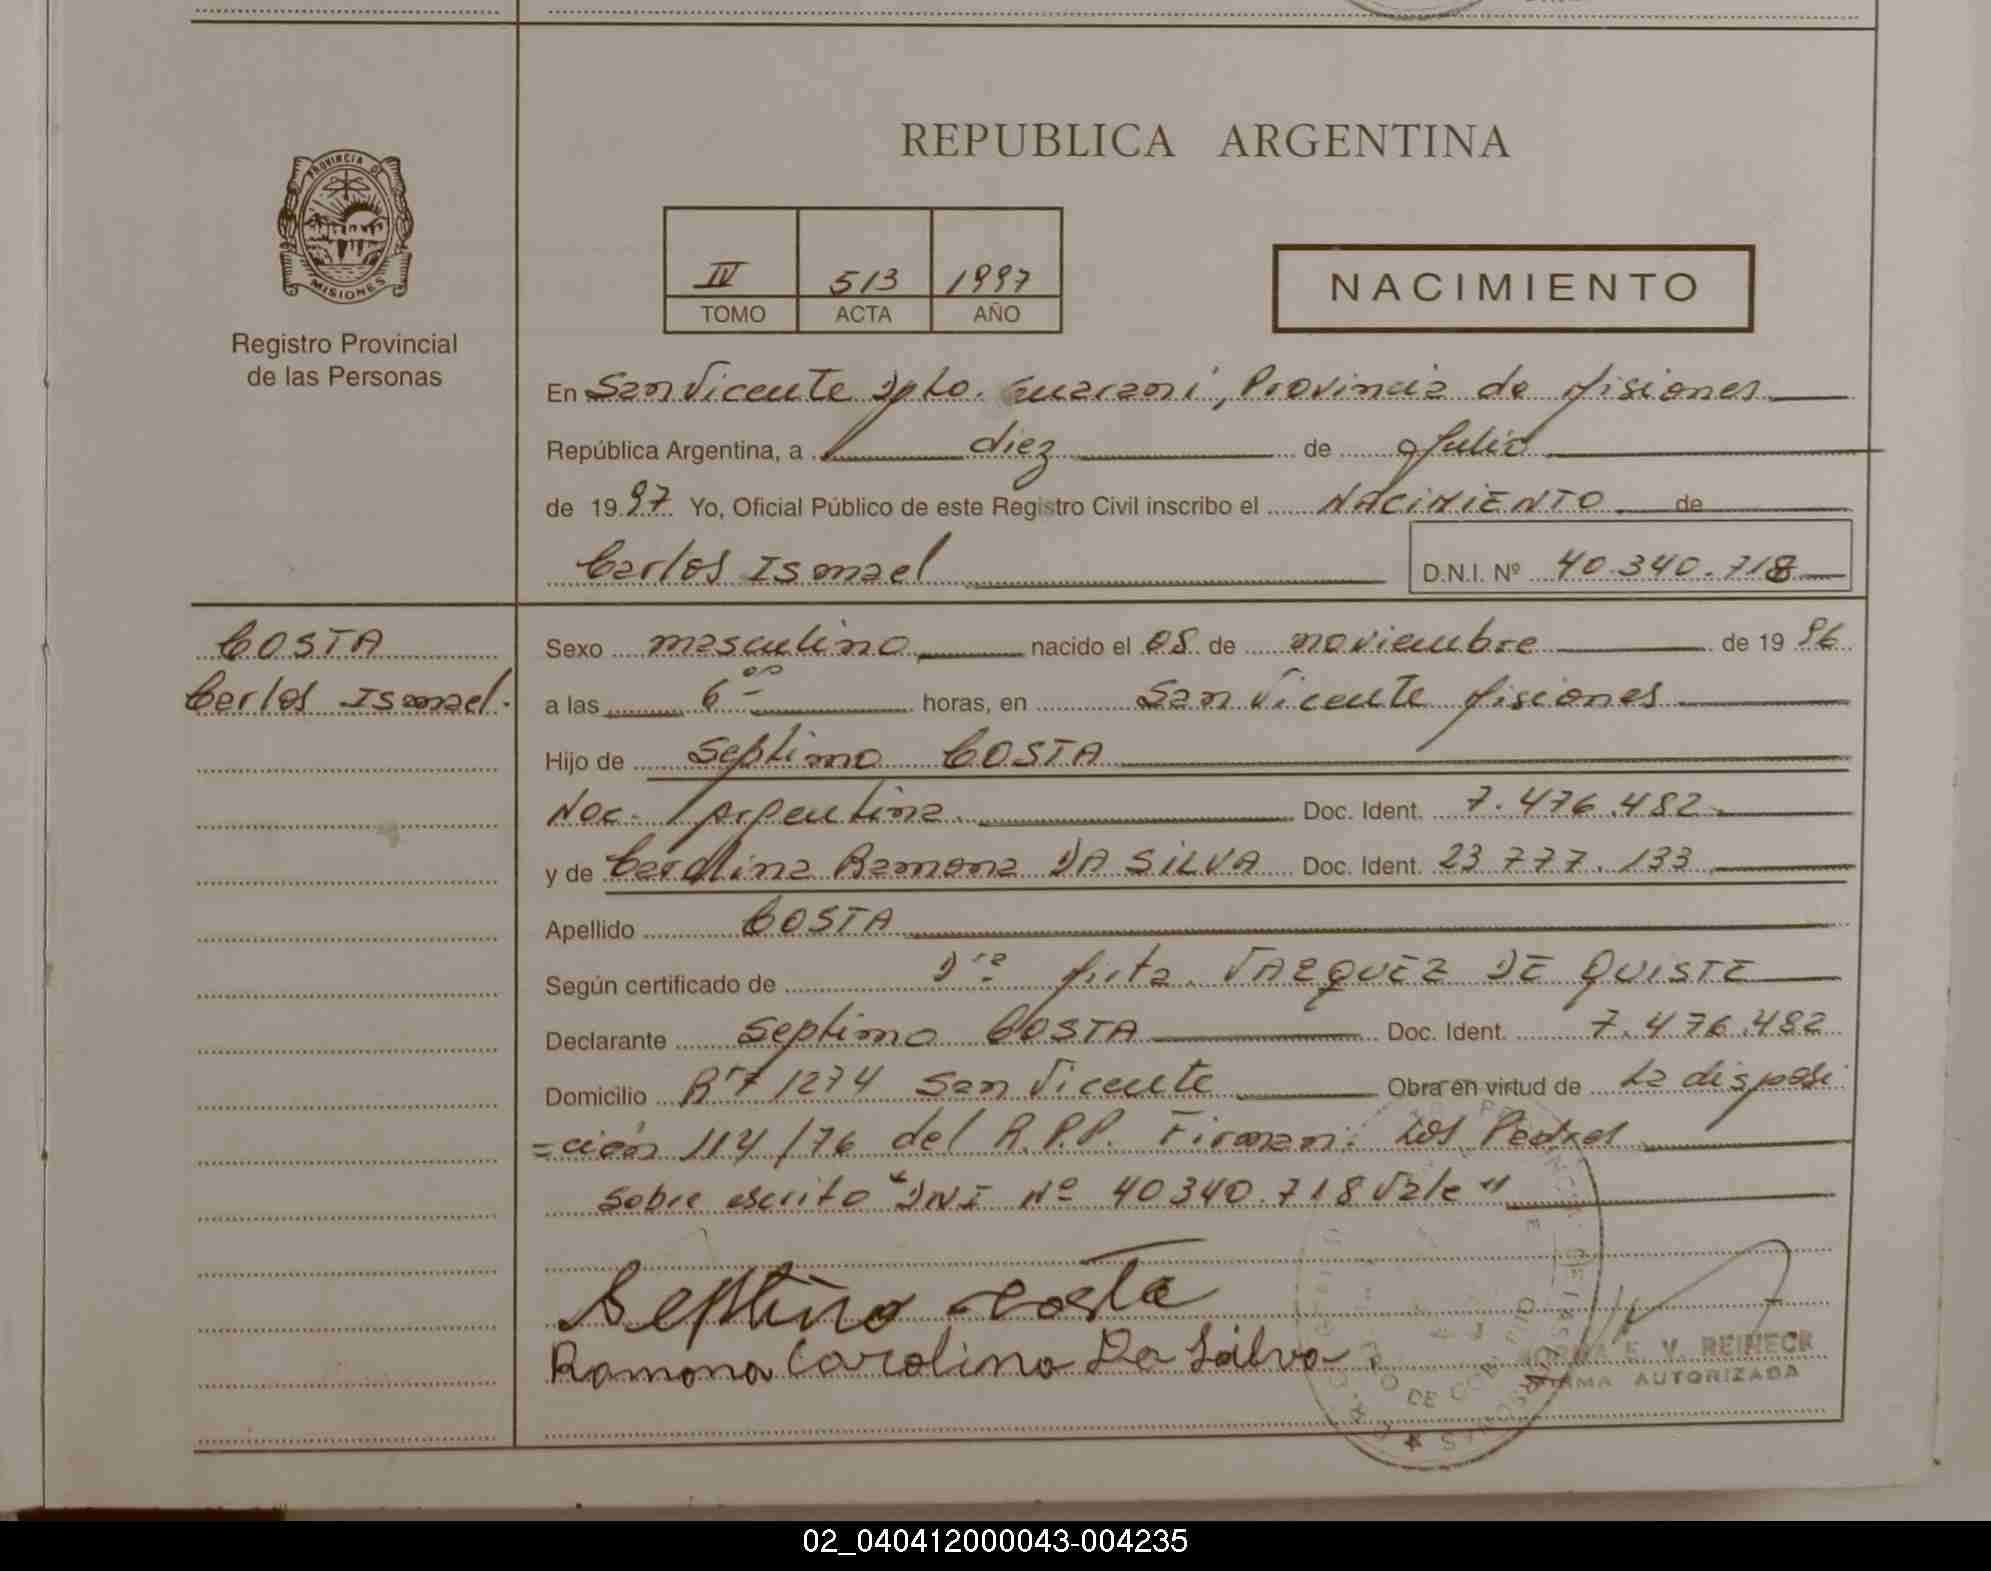 REPUBLICA ARGENTINA
PROVINCIA DE
MISIONES
Registro Provincial
de las Personas
IV 513 1997
TOMO ACTA AÑO
NACIMIENTO
En San Vicente Dpto. Guaraní, Provincia de Misiones
República Argentina, a diez de Julio
de 1997 Yo, Oficial Público de este Registro Civil inscribo el NACIMIENTO de
Carlos Ismael D.N.I. Nº 40.340.718
COSTA
Carlos Ismael.
Sexo masculino nacido el 08 de noviembre de 1996
a las 6 00 horas, en San Vicente Misiones
Hijo de Septimo COSTA
Nac. Argentina. Doc. Ident. 7.476.482
y de Carolina Ramona DA SILVA Doc. Ident. 23 777.133
Apellido COSTA
Según certificado de Dra Mirta VAZQUEZ DE QUISTE
Declarante Septimo COSTA Doc. Ident. 7.476.482
Domicilio R'7 1274 San Vicente Obra en virtud de La disposi
=ción 114/76 del R.P.P. Firman: Los Padres
Sobre escrito "DNI Nº 40340.718 Vale"
Septimo costa
Ramona Carolina Da Silva
E. V. REINECK
FIRMA AUTORIZADA
02_040412000043-004235